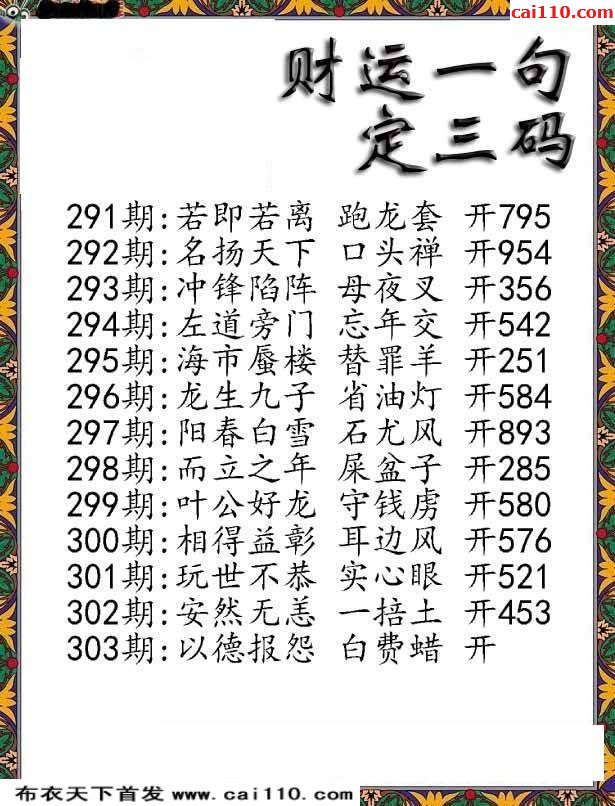 cai110.com
财运一句
定三码
291期:若即若离 跑龙套 开795
292期:名扬天下 口头禅 开954
293期:冲锋陷阵 母夜叉 开356
294期:左道旁门 忘年交 开542
295期:海市蜃楼 替罪羊 开251
296期:龙生九子 省油灯 开584
297期:阳春白雪 石尤风 开893
298期:而立之年 屎盆子 开285
299期:叶公好龙 守钱虏 开580
300期:相得益彰 耳边风 开576
301期:玩世不恭 实心眼 开521
302期:安然无恙 一掊土 开453
303期:以德报怨 白费蜡 开
布衣天下首发 www.cai110.com